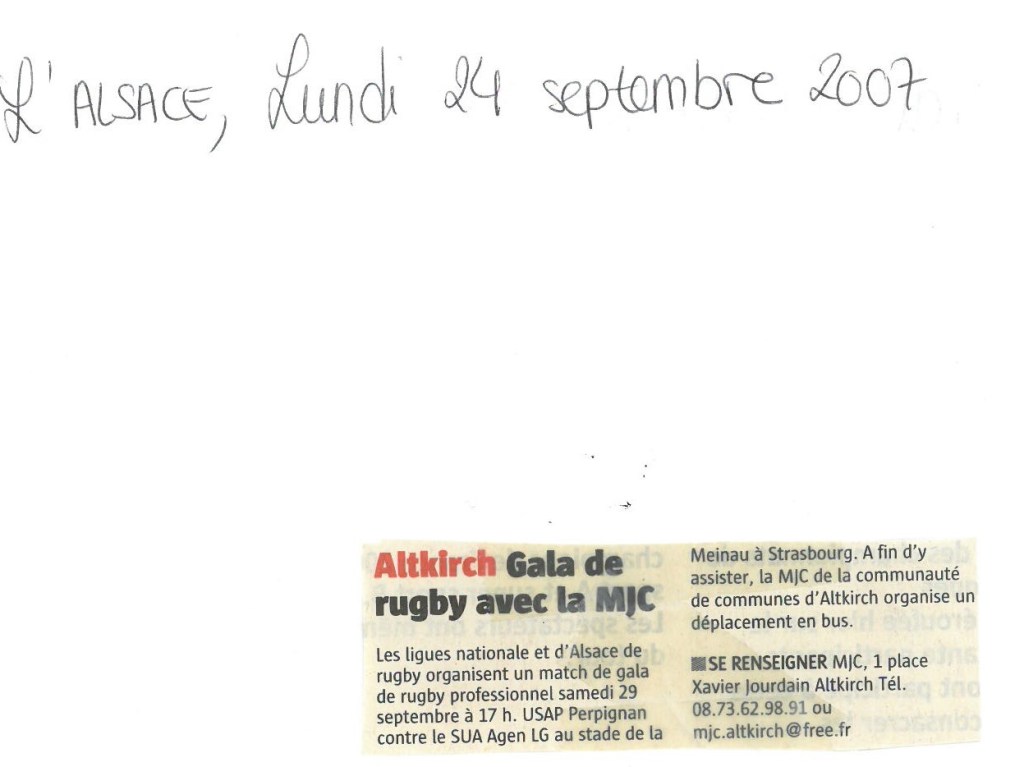 L'ALSACE, Lundi 24 septembre 2007
Altkirch Gala de
rugby avec la MJC
Les ligues nationale et d'Alsace de
rugby organisent un match de gala
de rugby professionnel samedi 29
septembre à 17 h. USAP Perpignan
contre le SUA Agen LG au stade de la
Meinau à Strasbourg. A fin d'y
assister, la MJC de la communauté
de communes d'Altkirch organise un
déplacement en bus.
SE RENSEIGNER MJC, 1 place
Xavier Jourdain Altkirch Tél.
08.73.62.98.91 ou
mjc.altkirch@free.fr